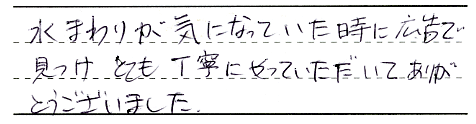 水まわりが気になっていた時に広告で
見つけ とても丁寧にやっていただいてありが
とうございました.